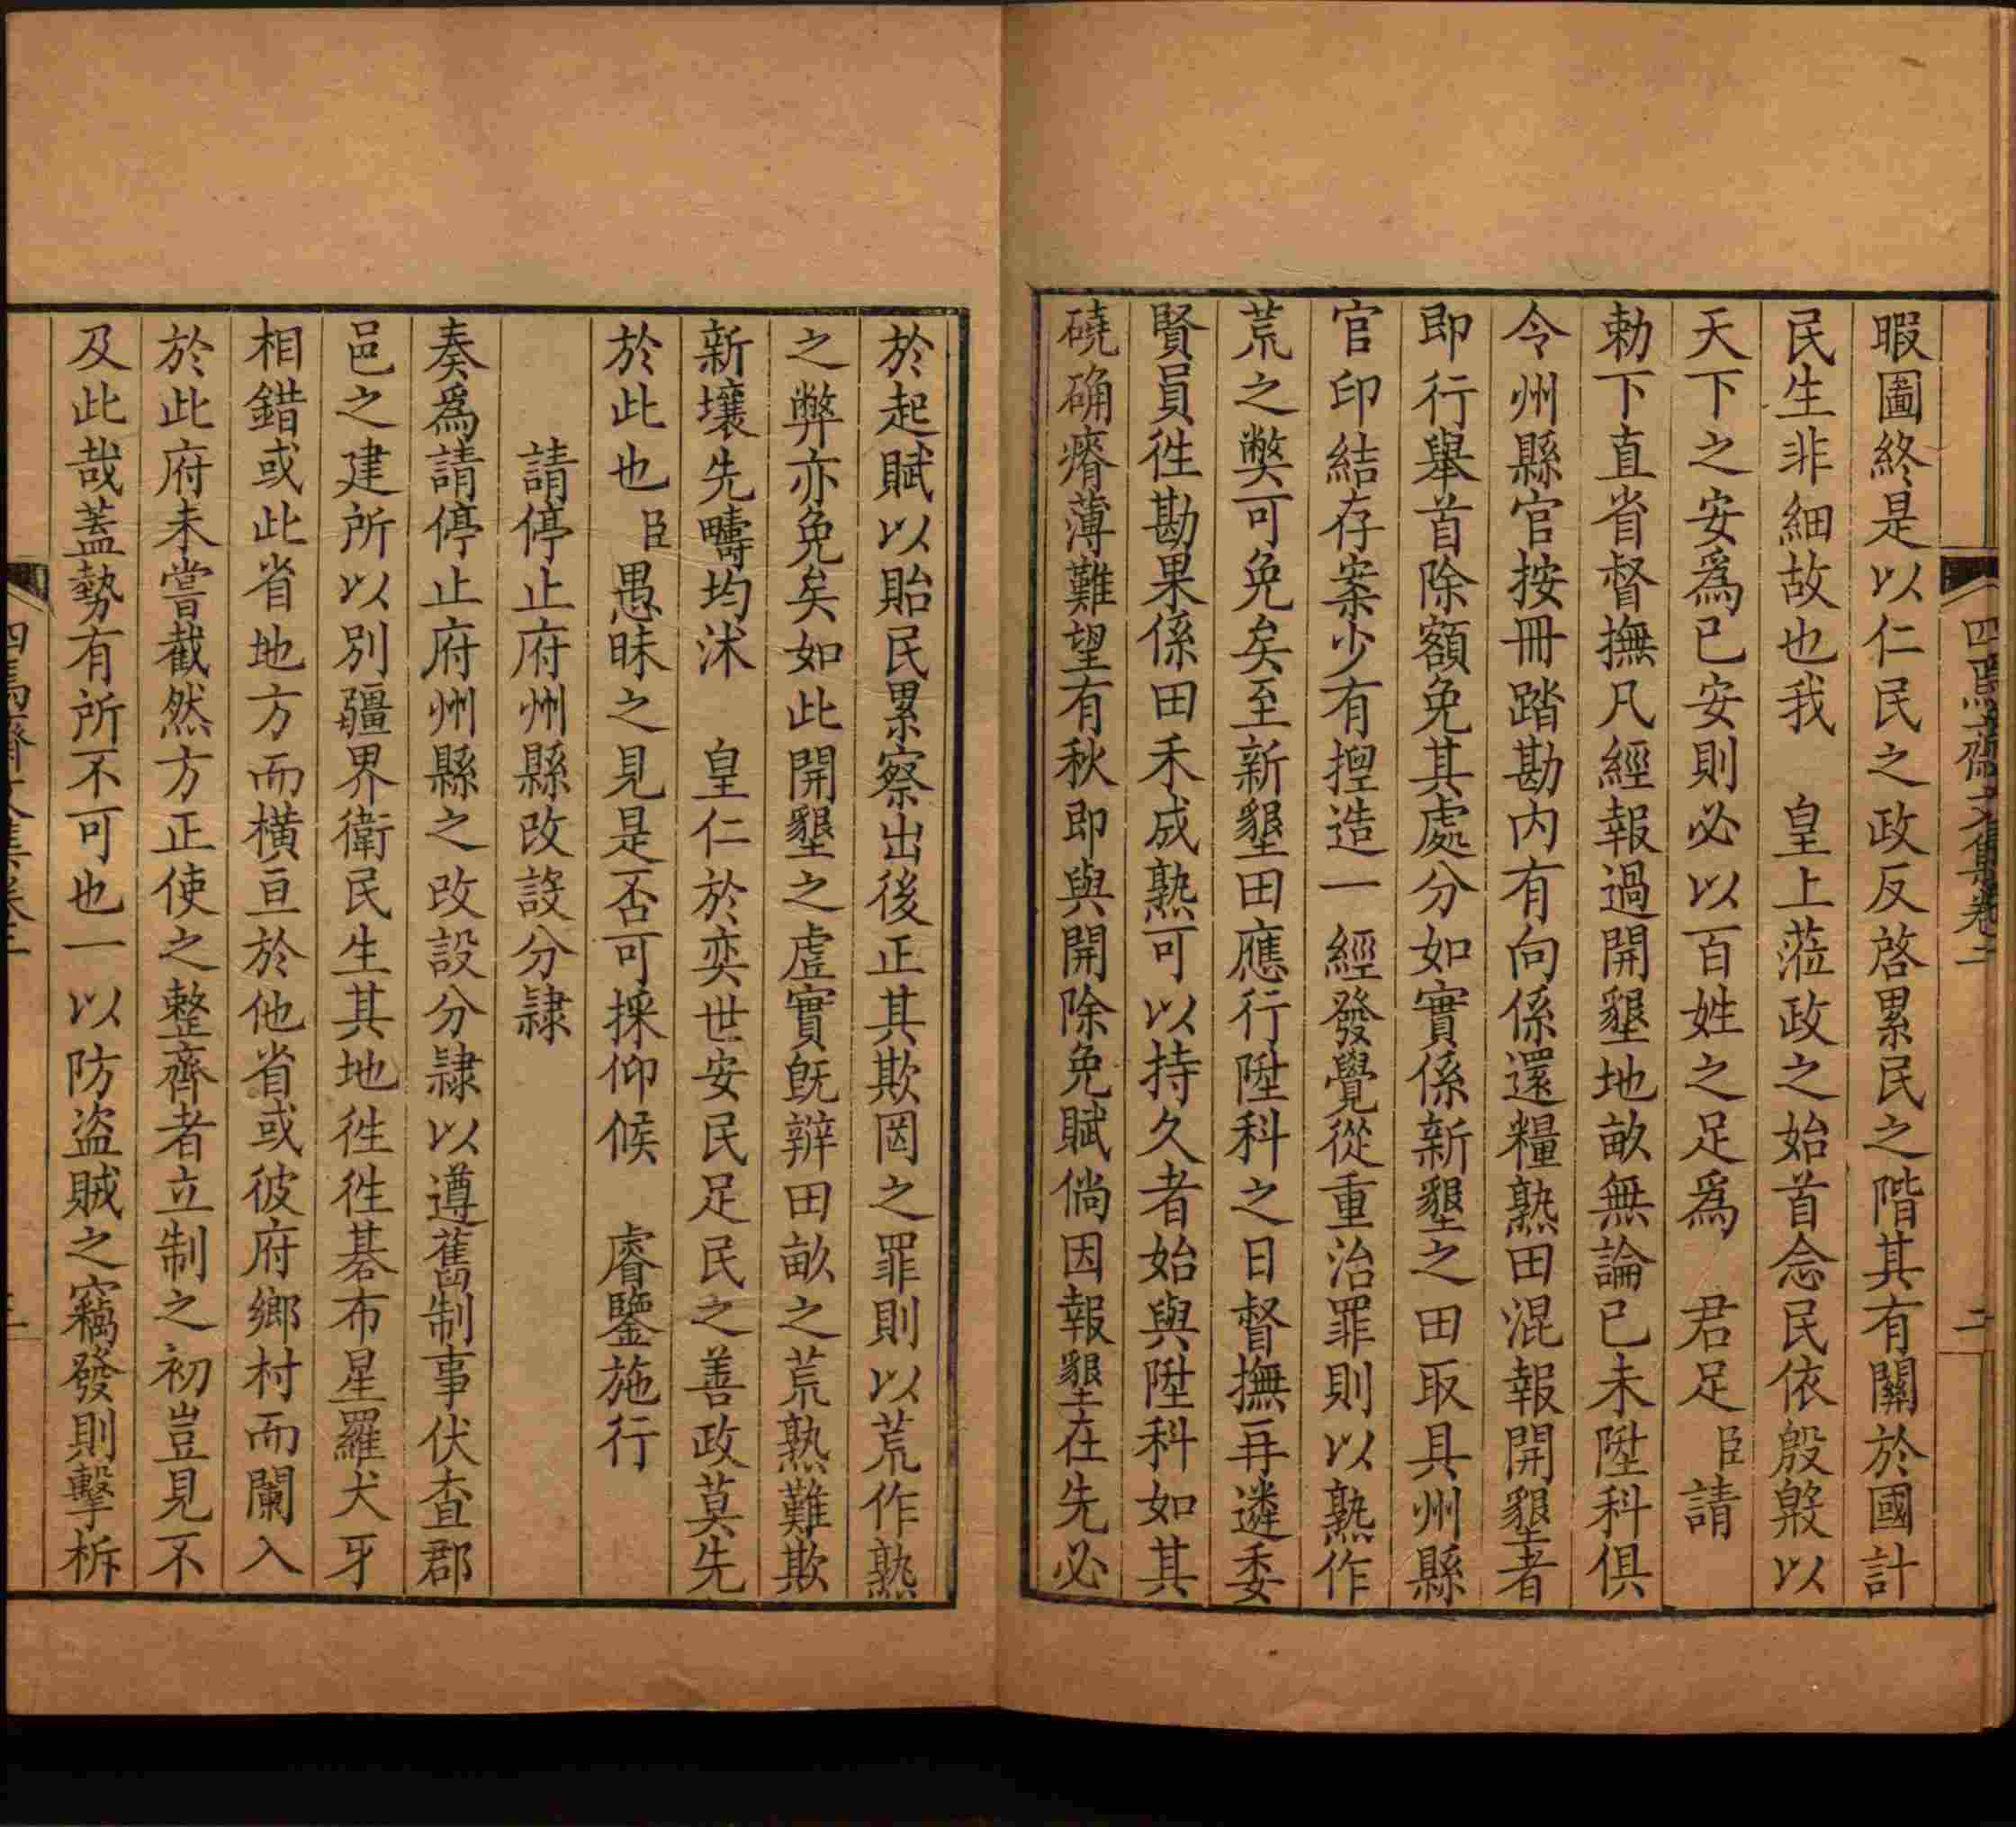 四焉齋文集卷二
二
暇圖終是以仁民之政反啓累民之階其有關於國計
民生非細故也我 皇上蒞政之始首念民依殷殷以
天下之安爲已安則必以百姓之足爲 君足臣請
勅下直省督撫凡經報過開墾地畝無論已未陞科俱
令州縣官按冊踏勘內有向係還糧熟田混報開墾者
即行舉首除額免其處分如實係新墾之田取具州縣
官印結存案少有揑造一經發覺從重治罪則以熟作
荒之獘可免矣至新墾田應行陞科之日督撫再遴委
賢員徃勘果係田禾成熟可以持久者始與陞科如其
磽确瘠薄難望有秋即與開除免賦倘因報墾在先必
於起賦以貽民累察出後正其欺罔之罪則以荒作熟
之弊亦免矣如此開墾之虛實旣辦田畝之荒熟難欺
新壤先疇均沐 皇仁於奕世安民足民之善政莫先
於此也臣愚昧之見是否可採仰候 睿鑒施行
請停止府州縣改設分隷
奏爲請停止府州縣之改設分隷以遵舊制事伏查郡
邑之建所以別疆界衛民生其地徃徃碁布星羅犬牙
相錯或此省地方而橫亘於他省或彼府鄉村而闌入
於此府未嘗截然方正使之整齊者立制之初豈見不
及此哉葢勢有所不可也一以防盜賊之竊發則擊柝
四焉齋文集卷二